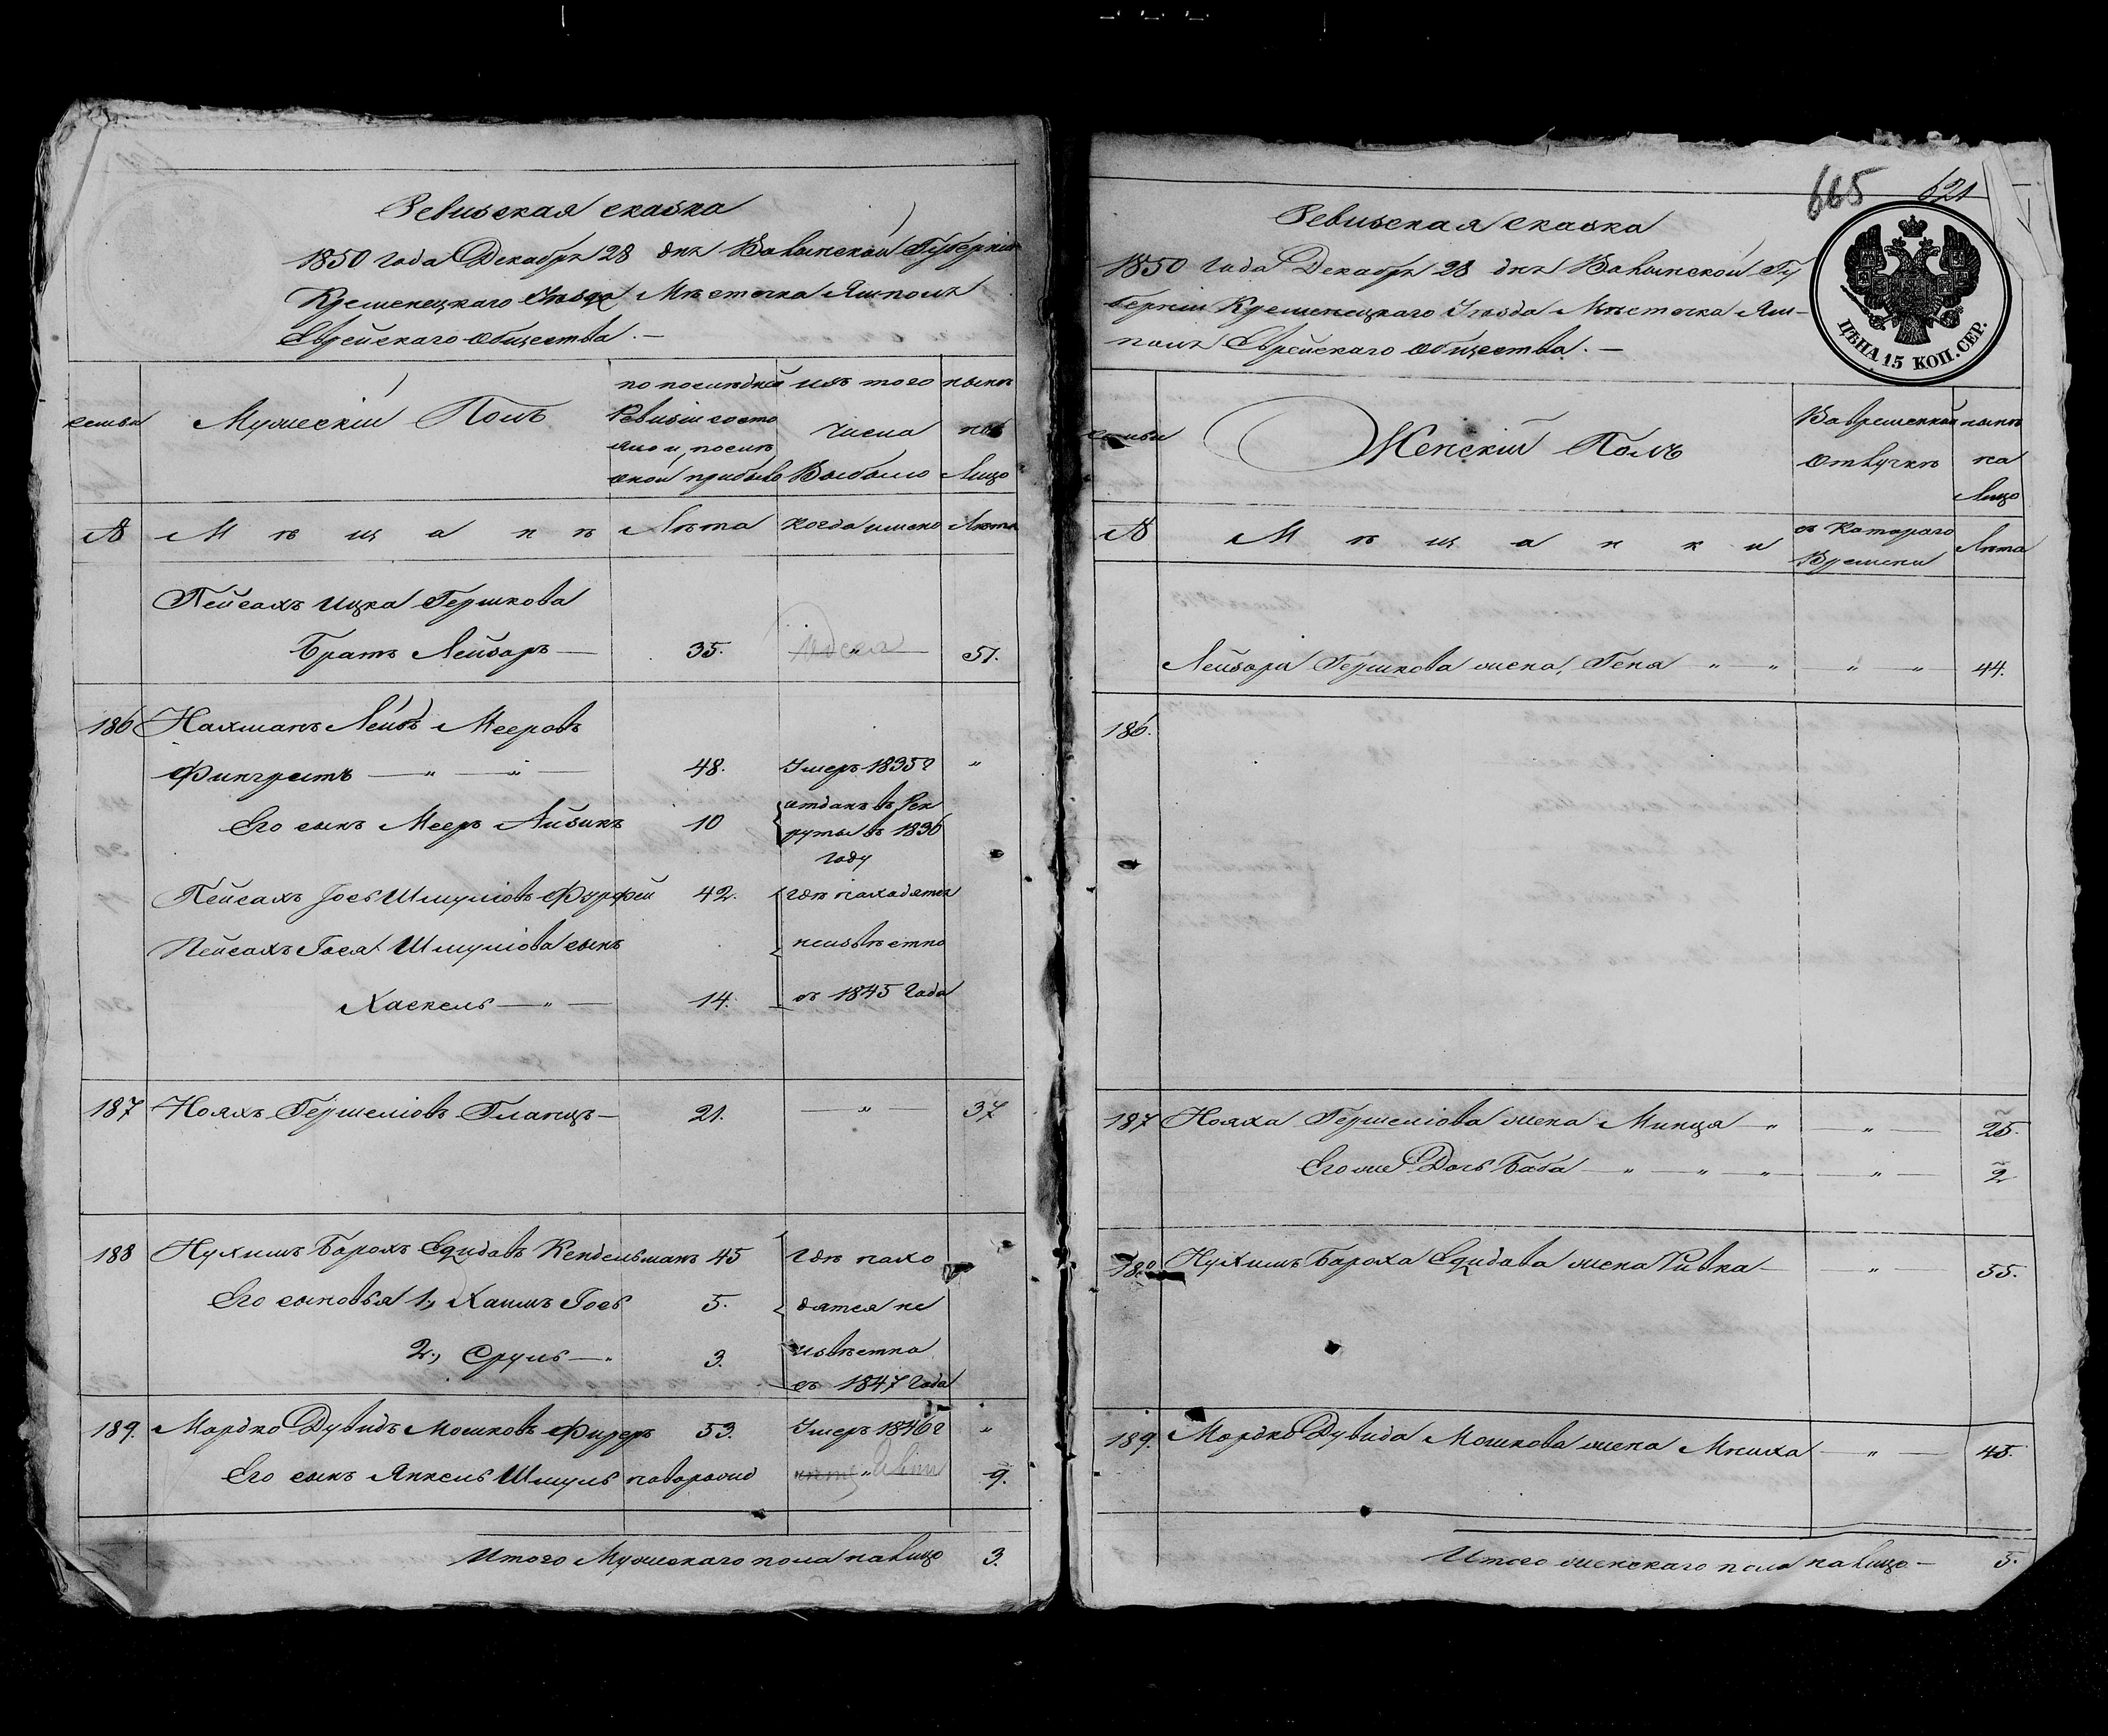 Ревизская сказка
1850 года Декабря 28 дня Волынской Губерніи
Кременецкаго Уѣзда Мѣстечка Ямполя
Еврейскаго Общества. —
семьи
Мужескій Полъ
по послѣдней
Ревизіи состо
яло и послѣ
оной прибыло
изъ того
числа
Выбыло
нынѣ
на
Лицо
№
М ѣ щ а н ѣ
Лѣта
когда имено
Лѣта
Пейсахъ Ицка Гершкова
Братъ Лейзоръ — 35. — " — 51.
186 Нахманъ Лейбъ Мееровъ
Фингрутъ — " — " — 48. Умеръ 1835г "
Его сынъ Мееръ Айзикъ 10 отданъ въ Рек
руты въ 1836
году
Пейсахъ Іось Шмуліовъ Фурфей 42. гдѣ находятся
Пейсахъ Іося Шмуліова сынъ неизвѣстно
Хаскель — " — 14. съ 1845 года
187 Нояхъ Гершеліовъ Гланцъ — 21. — " — 37
188 Нухимъ Борохъ Едидавъ Кендельманъ 45 гдѣ нахо
Его сыновья 1, Хаимъ Іось 5. дятся не
2, Сруль — " 3. извѣстно
съ 1847 года
189. Мордко Дувидъ Мошковъ Фиреръ 53. Умеръ 1846г "
Его сынъ Янкель Шмуль новорожд 9.
Итого Мужескаго пола налицо 3.
665 621
Ревизская сказка
1850 года Декабря 28 дня Волынской Гу
берніи Кременецкаго Уѣзда Мѣстечка Ям-
поля Еврейскаго Общества. —
ЦѢНА 15 КОП. СЕР.
семьи
Женскій Полъ
Во временной
отлучкѣ
нынѣ
на
Лицо
№
М ѣ щ а н к и
съ котораго
Времени
Лѣта
Лейзора Гершкова жена, Геня " " " " 44.
186.
187 Нояха Гершеліова жена Минця " — " — 25.
Его же Дочь Баба — " — " — " — " — 2
188 Нухимъ Бороха Едидава жена Ривка — " — 55.
189. Мордко Дувида Мошкова жена Мниха — " — 45.
Итого женскаго пола налицо — 5.